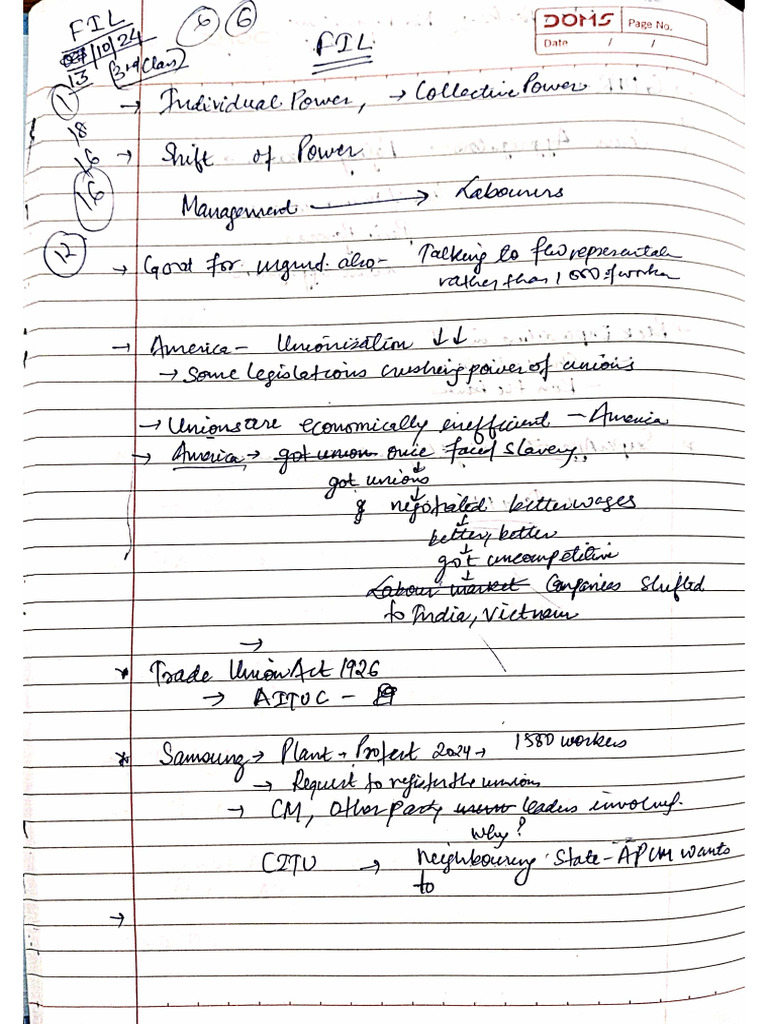 FIL
13/10/24
(3rd Class)
6 6
DOMS
Page No.
Date / /
FIL
1
18
16
16
12
→ Individual Power, → Collective Power
→ Shift of Power
Management → Labourers
→ Good for mgmt. also - Talking to few representati
rather than 1000 of worker
→ America - Unionization ↓↓
→ Some legislations crushing power of unions
→ Unions are economically inefficient - America
→ America → got union once faced slavery,
↓
got unions
↓
& negotiated better wages
↓
better, better
↓
got uncompetitive
↓
Labour market Companies shifted
to India, Vietnam
→
* Trade Union Act 1926
→ AITUC -
* Samsung → Plant → Protest 2024 → 1580 workers
→ Request to register the union
→ CM, Other party leaders involving.
Why?
CITU → Neighbouring State - AP CM wants
to
→